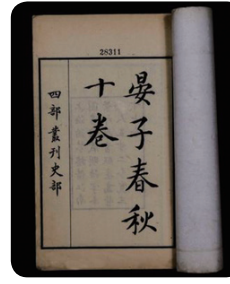 28311
晏子春秋
十卷
四部叢刊史部